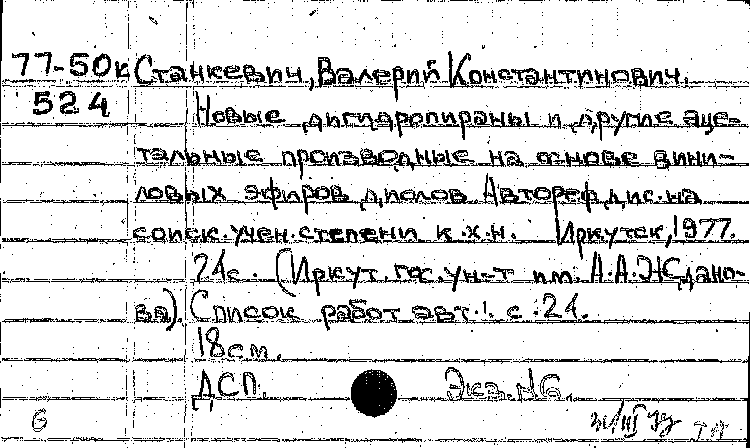 77-50к Станкевич, Валерий Константинович.
524 Новые дигидропираны и другие аце-
тальные производные на основе вини-
ловых эфиров диолов Автореф.дис.на
соиск.учен.степени к.х.н. Иркутск, 1977.
24с. (Иркут.гос.ун-т им. А.А.Ждано-
ва). Список работ авт.: с.24.
18см.
ДСП. Экз.№6.
6